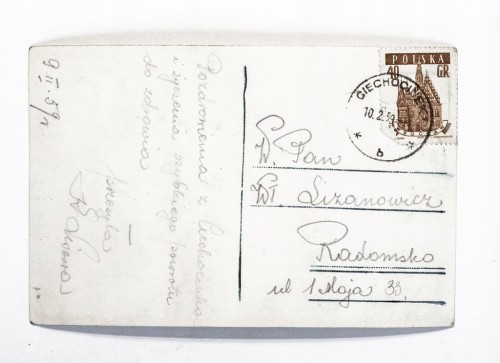 9 II. 59 r
Pozdrowienia z Ciechocinka
i życzenia szybkiego powrotu
do zdrowia
przesyła
POLSKA
40 GR
CIECHOCINEK
10.2.59
b
W. Pan
Wł. Lizanowicz
Radomsko
ul 1 Maja 33.